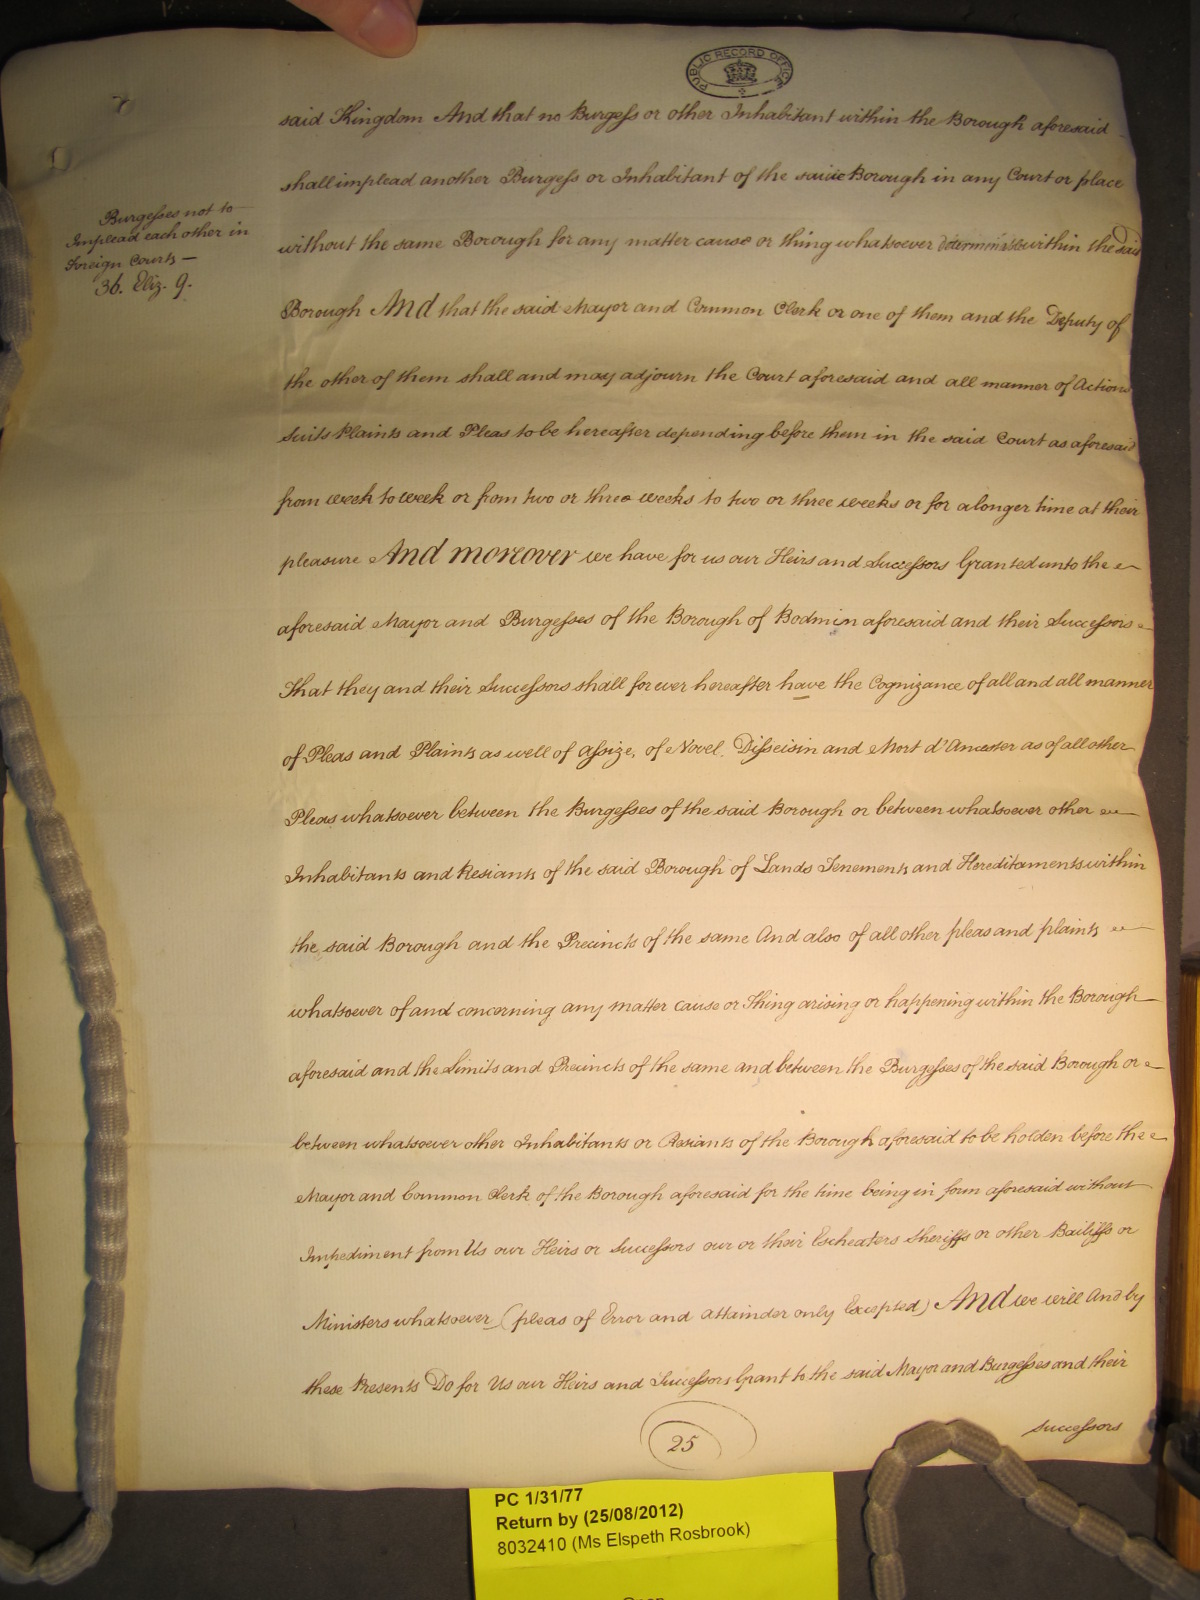 PUBLIC RECORD OFFICE
said Kingdom And that no Burgess or other Inhabitant within the Borough aforesaid
shall implead another Burgess or Inhabitant of the said Borough in any Court or place
Burgesses not to
Implead each other in
Foreign Courts —
36. Eliz. 9.
without the same Borough for any matter cause or thing whatsoever within the said
Borough And that the said Mayor and Common Clerk or one of them and the Deputy of
the other of them shall and may adjourn the Court aforesaid and all manner of Actions
Suits Plaints and Pleas to be hereafter depending before them in the said Court as aforesaid
from week to week or from two or three weeks to two or three weeks or for a longer time at their
pleasure And moreover we have for us our Heirs and Successors Granted unto the
aforesaid Mayor and Burgesses of the Borough of Bodmin aforesaid and their Successors
That they and their Successors shall for ever hereafter have the Cognizance of all and all manner
of Pleas and Plaints as well of assize, of Novel Disseisin and Mort d'Ancester as of all other
Pleas whatsoever between the Burgesses of the said Borough or between whatsoever other
Inhabitants and Resiants of the said Borough of Lands Tenements and Hereditaments within
the said Borough and the Precincts of the same And also of all other pleas and plaints
whatsoever of and concerning any matter cause or Thing arising or happening within the Borough
aforesaid and the Limits and Precincts of the same and between the Burgesses of the said Borough or
between whatsoever other Inhabitants or Resiants of the Borough aforesaid to be holden before the
Mayor and Common Clerk of the Borough aforesaid for the time being in form aforesaid without
Impediment from Us our Heirs or Successors our or their Escheaters Sheriffs or other Bailiffs or
Ministers whatsoever (pleas of Error and attainder only Excepted) And we will And by
these Presents Do for Us our Heirs and Successors Grant to the said Mayor and Burgesses and their
successors
25
PC 1/31/77
Return by (25/08/2012)
8032410 (Ms Elspeth Rosbrook)